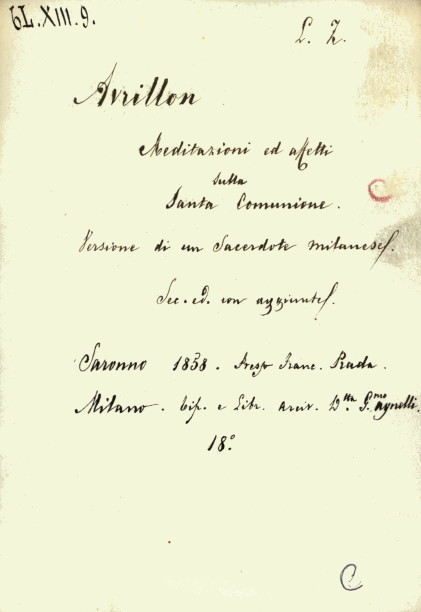 6L.XIII.9.
L. Z.
Avrillon
Meditazioni ed affetti
sulla
Santa Comunione.
Versione di un Sacerdote milanese.
Sec. ed. con aggiunte.
Saronno 1858. Presso Franc. Prada.
Milano. Tip. e Libr. Arciv. Dtta Gmo Agnelli.
18°
C
C